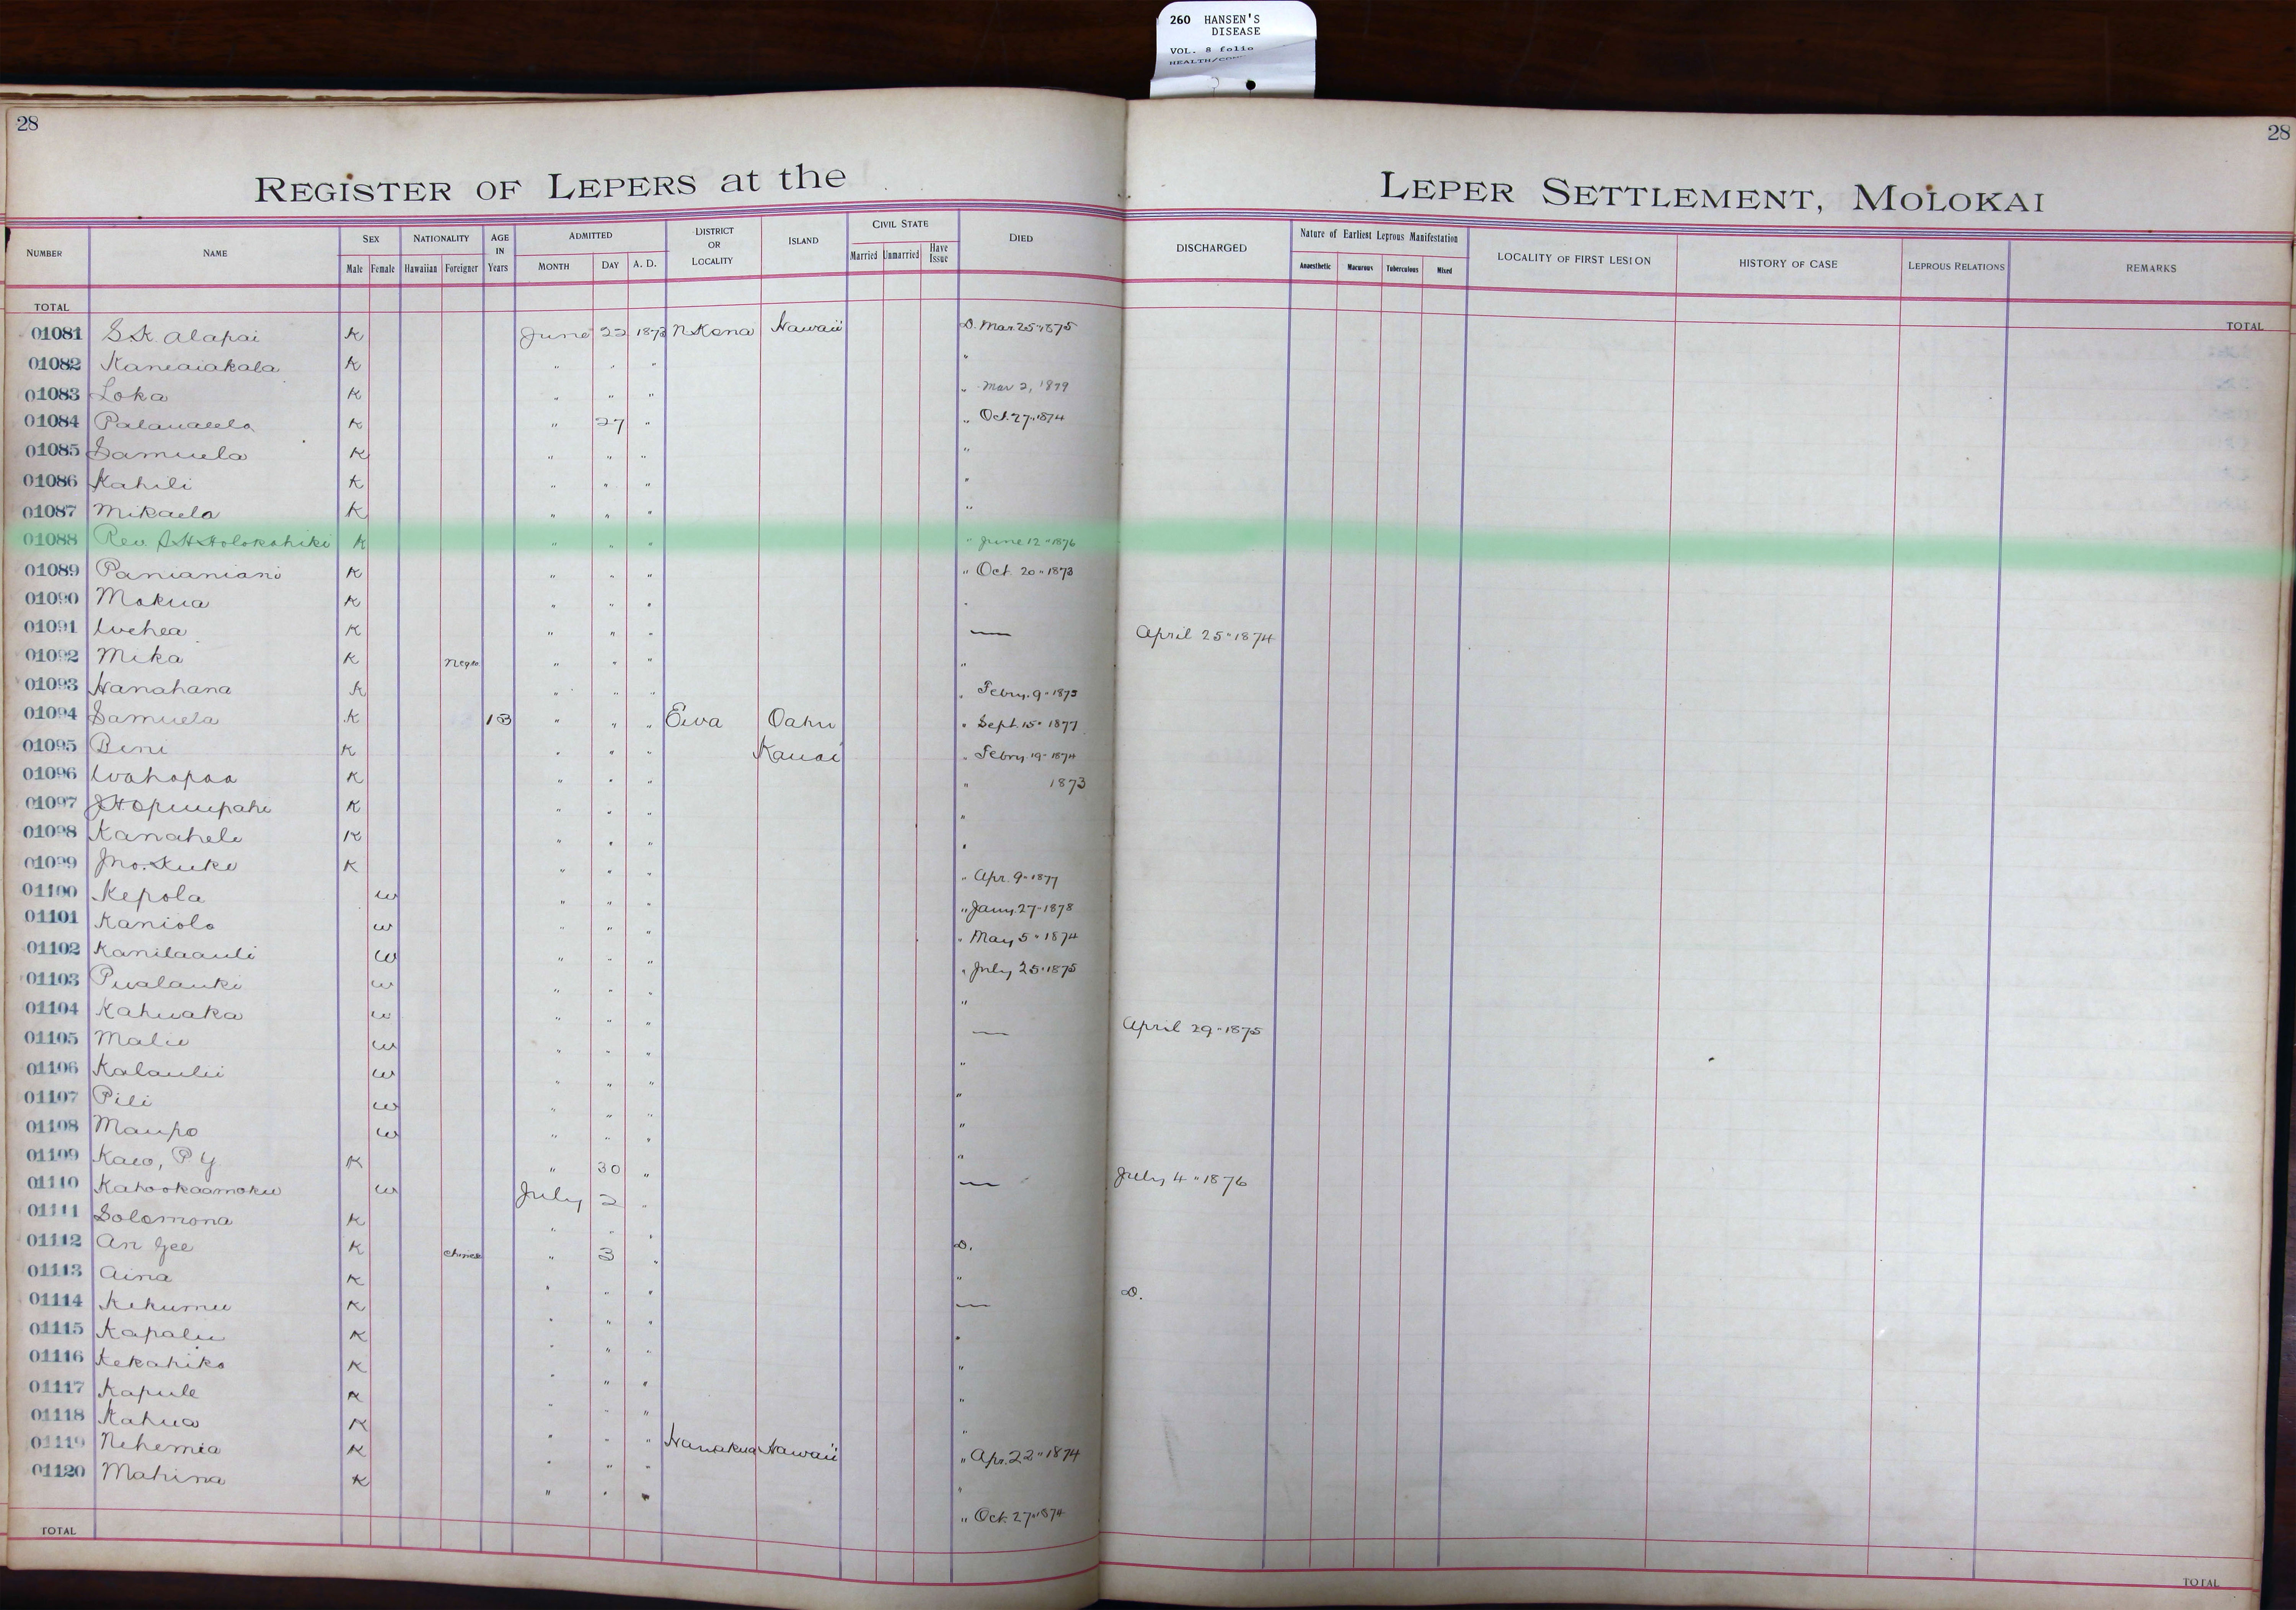 260 HANSEN'S
DISEASE
VOL. 8 folio
28
28
REGISTER OF LEPERS at the LEPER SETTLEMENT, MOLOKAI
NUMBER NAME SEX NATIONALITY AGE IN Years ADMITTED DISTRICT OR LOCALITY ISLAND CIVIL STATE DIED DISCHARGED Nature of Earliest Leprous Manifestation LOCALITY OF FIRST LESION HISTORY OF CASE LEPROUS RELATIONS REMARKS
Male Female Hawaiian Foreigner MONTH DAY A. D. Married Unmarried Have Issue Anaesthetic Macurous Tuberculous Mixed
TOTAL TOTAL
01081 S.K. Alapai K June 22 1873 N Kona Hawaii D. Mar. 25 " 1875
01082 Kaneaiakala K " " " "
01083 Loka K " " " " Mar 2, 1879
01084 K " 27 " " Oct. 27 " 1874
01085 Samuela K " " " "
01086 Kahili K " " " "
01087 Mikaela K " " " "
01088 Rev. S H Holokahiki K " " " " June 12 " 1876
01089 Panianiani K " " " " Oct. 20 " 1873
01090 Mokua K " " " "
01091 K " " " — April 25 " 1874
01092 Mika K Negro " " " "
01093 Hanahana K " " " " Febry. 9 "
01094 Samuela K 13 " " " Ewa Oahu " Sept. 15 " 1877
01095 Beni K " " " Kauai " Febry 19 " 1874
01096 Wahapaa K " " " " 1873
01097 K " " " "
01098 Kanahele K " " " "
01099 Jno. Kuke K " " " " Apr. 9 " 1877
01100 Kepola w " " " " Jany. 27 " 1878
01101 Kaniolo w " " " " May 5 " 1874
01102 Kanilaauli w " " " " July 25 " 1875
01103 Pualauki w " " " "
01104 Kahuaka w " " " — April 29 " 1875
01105 Malie w " " " "
01106 Kalaulii w " " " "
01107 Pili w " " " "
01108 Maupo w " " " "
01109 Kaeo, P Y K " 30 " — July 4 " 1876
01110 Kahookaamoku w July 2 "
01111 Solomona K " " " D.
01112 An Gee K Chinese " 3 " "
01113 Aina K " " " — D.
01114 Kekumu K " " " "
01115 Kapalu K " " " "
01116 Kekahiko K " " " "
01117 Kapule K " " " "
01118 Kahua K " " "
01119 Nehemia K " " " Hamakua Hawaii " Apr. 22 " 1874
01120 Mahina K " " " " Oct. 27 " 1874
TOTAL TOTAL